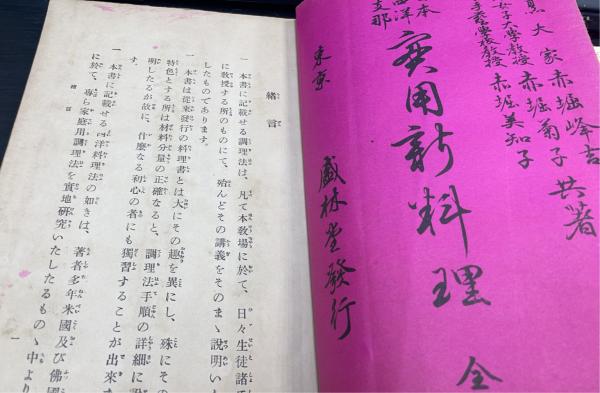 大家 赤堀峰吉
女子大學教授 赤堀菊子 共著
手藝學校教授 赤堀美知子
本
西洋
支那
實用新料理 全
東京 盛林堂發行
緒言
一 本書に記載せる調理法は、凡て本教場に於て、日々生徒諸
に教授する所のものにて、殆んどその講義をそのまゝ説明い
したものであります。
一 本書は從來發行の料理書とは大にその趣を異にし、殊にその
特色とする所は材料分量の正確なると、調理法手順の詳細に說
明したるが故に、什麼なる初心の者にも獨習することが出來ま
一 本書に記載せる西洋料理法の如きは、著者多年米國及び佛國
に於て、專ら家庭用調理法を實地硏究いたしたるものゝ中より
緒言
一